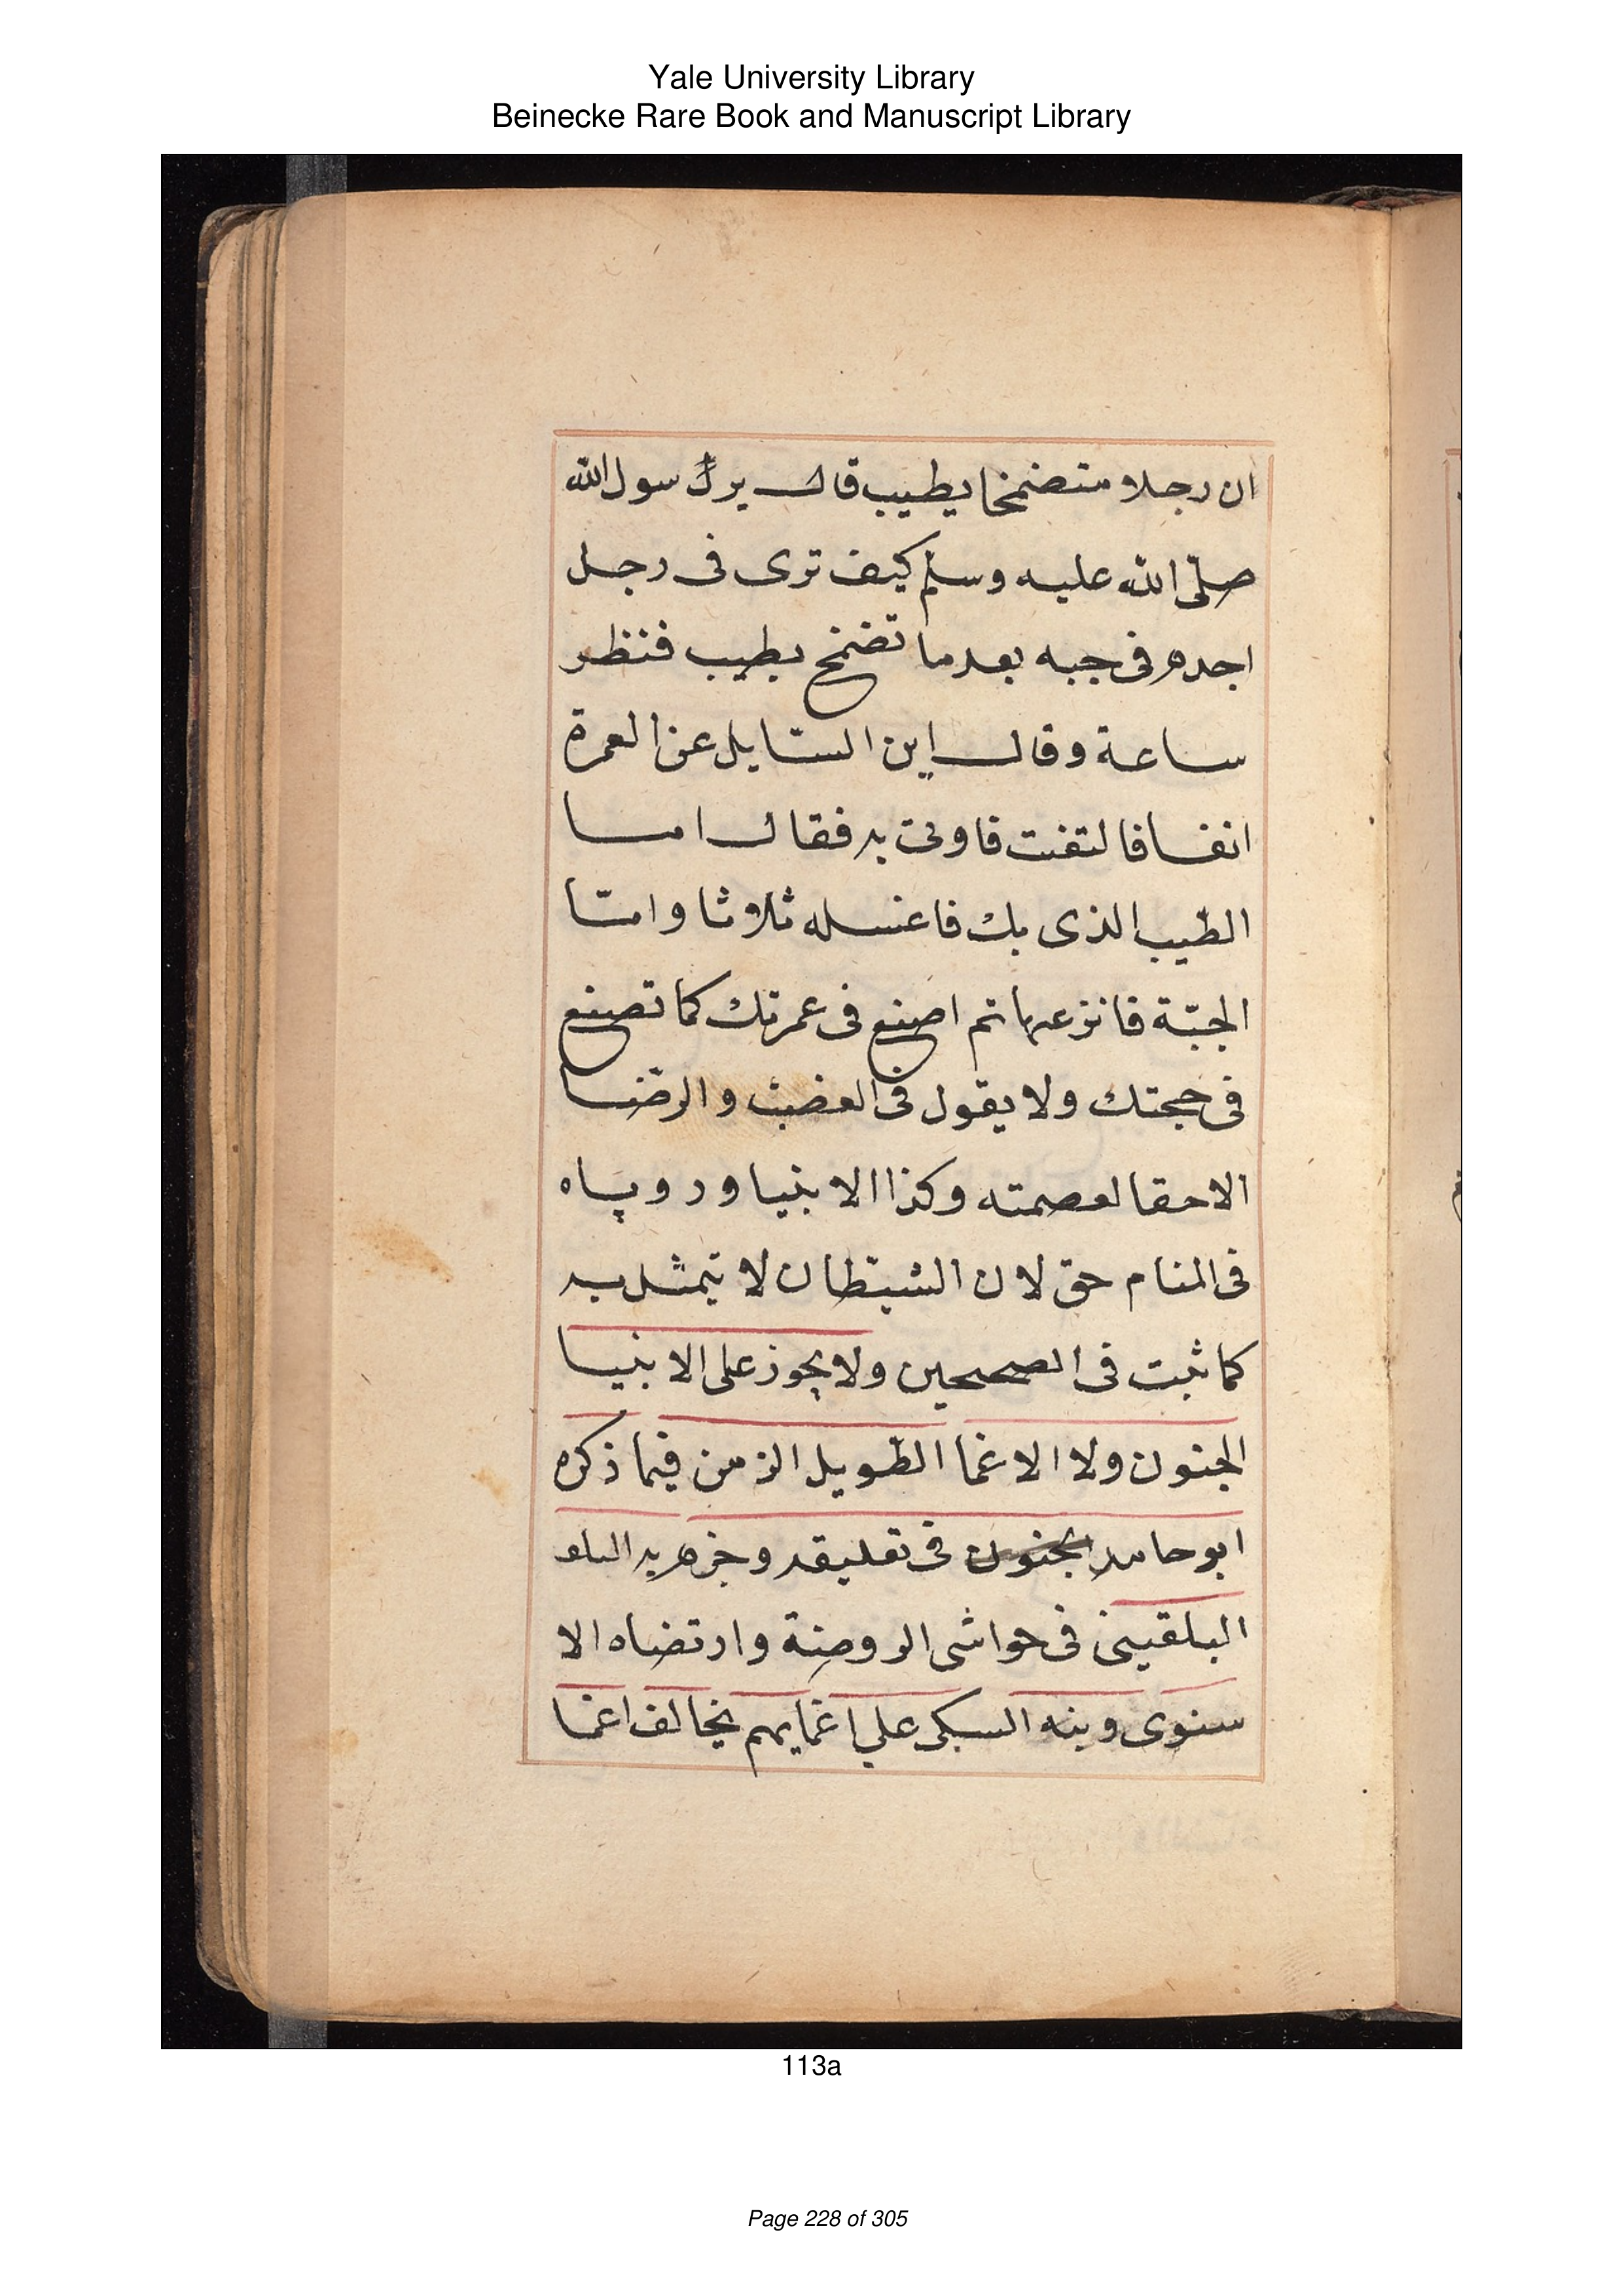 Yale University Library
Beinecke Rare Book and Manuscript Library
ان رجلا متضمخا بطيب قال يرك سول الله
صلّى الله عليه وسلم كيف ترى فى رجل
اجده فى جبه بعدما تضمخ بطيب فنظر
ساعة وقال اين السّايل عن العمرة
انفسا فالتفت فاوتى به فقال امسا
الطّيب الذى بك فاغسله ثلاوثا وامّا
الجبّة فانزعها ثم اصنع فى عمرتك كما تصنع
فى حجتك ولا يقول فى الغضب والرضا
الاحقا لعصمته وكذا الابنيا وروياه
فى المنام حق لان الشيطان لا يتمثل به
كما ثبت فى الصحيحين ولا يجوز على الابنيا
الجنون ولا الاغما الطّويل الزمن فيما ذكره
ابو حامد الجنون فى تعليقه وجزم به البلو
البلقينى فى حواشى الروضة وارتضاه الا
سنوى وبنه السبكى على اغمايهم يخالف اغما
113a
Page 228 of 305